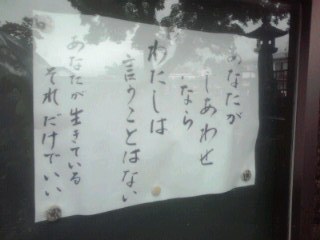 あなたが
しあわせ
なら
わたしは
言うことはない
あなたが生きている
それだけでいい